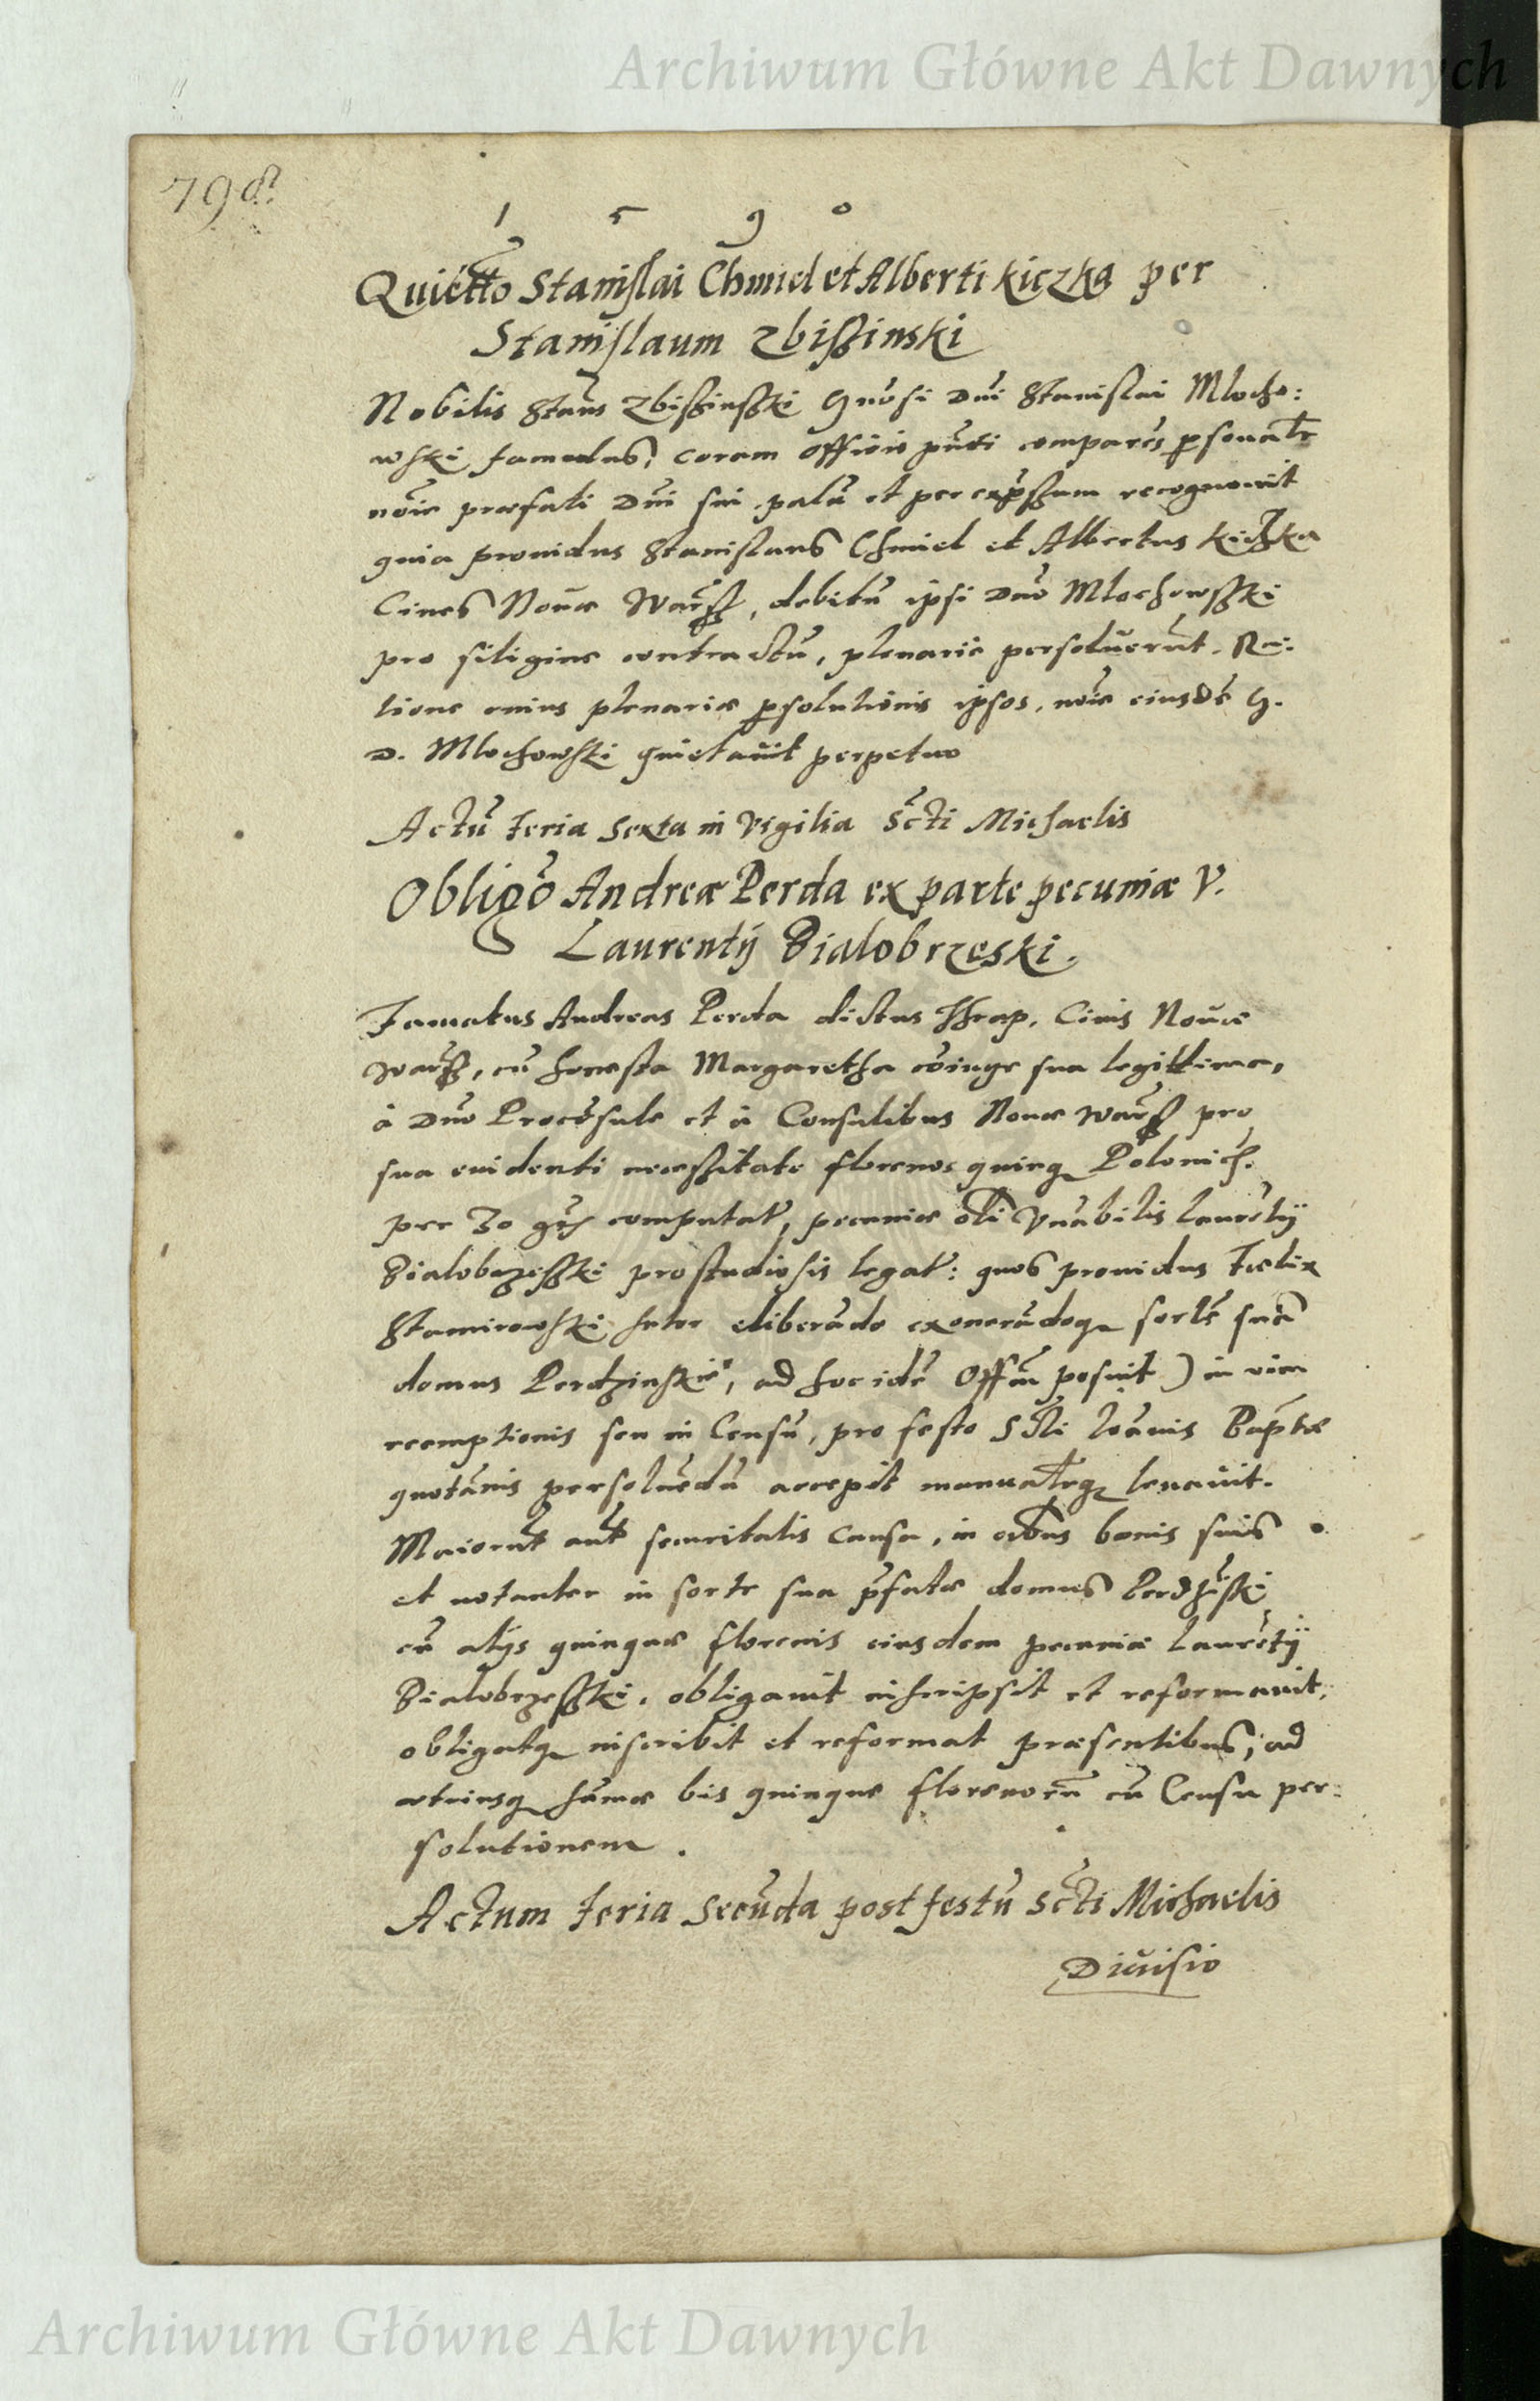 Archiwum Główne Akt Dawnych
798.
1 5 9 0
Quiettõ Stanislai Chmiel et Alberti Kiczka per
Stanislaum Zbißinski
Nobilis Stañs Zbißinski Gnõsi Dñi Stanislai Mlocho:
wski famulus, coram officio pñti comparẽs psonalr
nõie præfati Dñi sui palã et per expßum recognouit
quia prouidus Stanislaus Chmiel et Albertus Kiczka
Ciues Nouæ Warß, debitũ ipsi Dño Mlochowski
pro siligine contractũ, plenarie persoluerũt. Ra:
tione cuius plenariæ psolutionis ipsos, nõie eiusdẽ G.
D. Mlochowski quietauit perpetuo
Actũ feria Sexta in Vigilia Scti Michaelis
Obligõ Andreæ Perda ex parte pecuniæ V.
Laurentij Bialobrzeski.
Famatus Andreas Perda dictus Ciuis Nouæ
Warß, cũ honesta Margaretha cõiuge sua legittima,
à Dño Procõsule et à Consulibus Nouæ Warß pro
sua euidenti necessitate florenos quinq Polonich.
per 30 computat, pecuniæ oli Vnabilis Laurẽtij
Bialobrzeski pro studiosis legat: quos prouidus Fælix
Stamirowski sutor eliberãdo exonerãdoq sortẽ suã
domus Perdzinskie, ad hoc idẽ Offm posuit) in vim
reemptionis seu in Censũ, pro festo Sti Ioãnis Baptæ
quotãnis persoluẽdũ accepit manualrq leuauit.
Maioris aut securitatis causa, in oibus bonis suis
et notanter in sorte sua pfatæ domus Perdzĩski
cũ alijs quinque florenis eiusdem pecuniæ Laurẽtij
Bialobrzeski. obligauit inscripsit et reformauit,
obligatq inscribit et reformat præsentibus, ad
utriusq sũmæ bis quinque florenorũ cũ Censu per:
solutionem.
Actum feria Secũda post festũ Scti Michaelis
Diuisio
Archiwum Główne Akt Dawnych